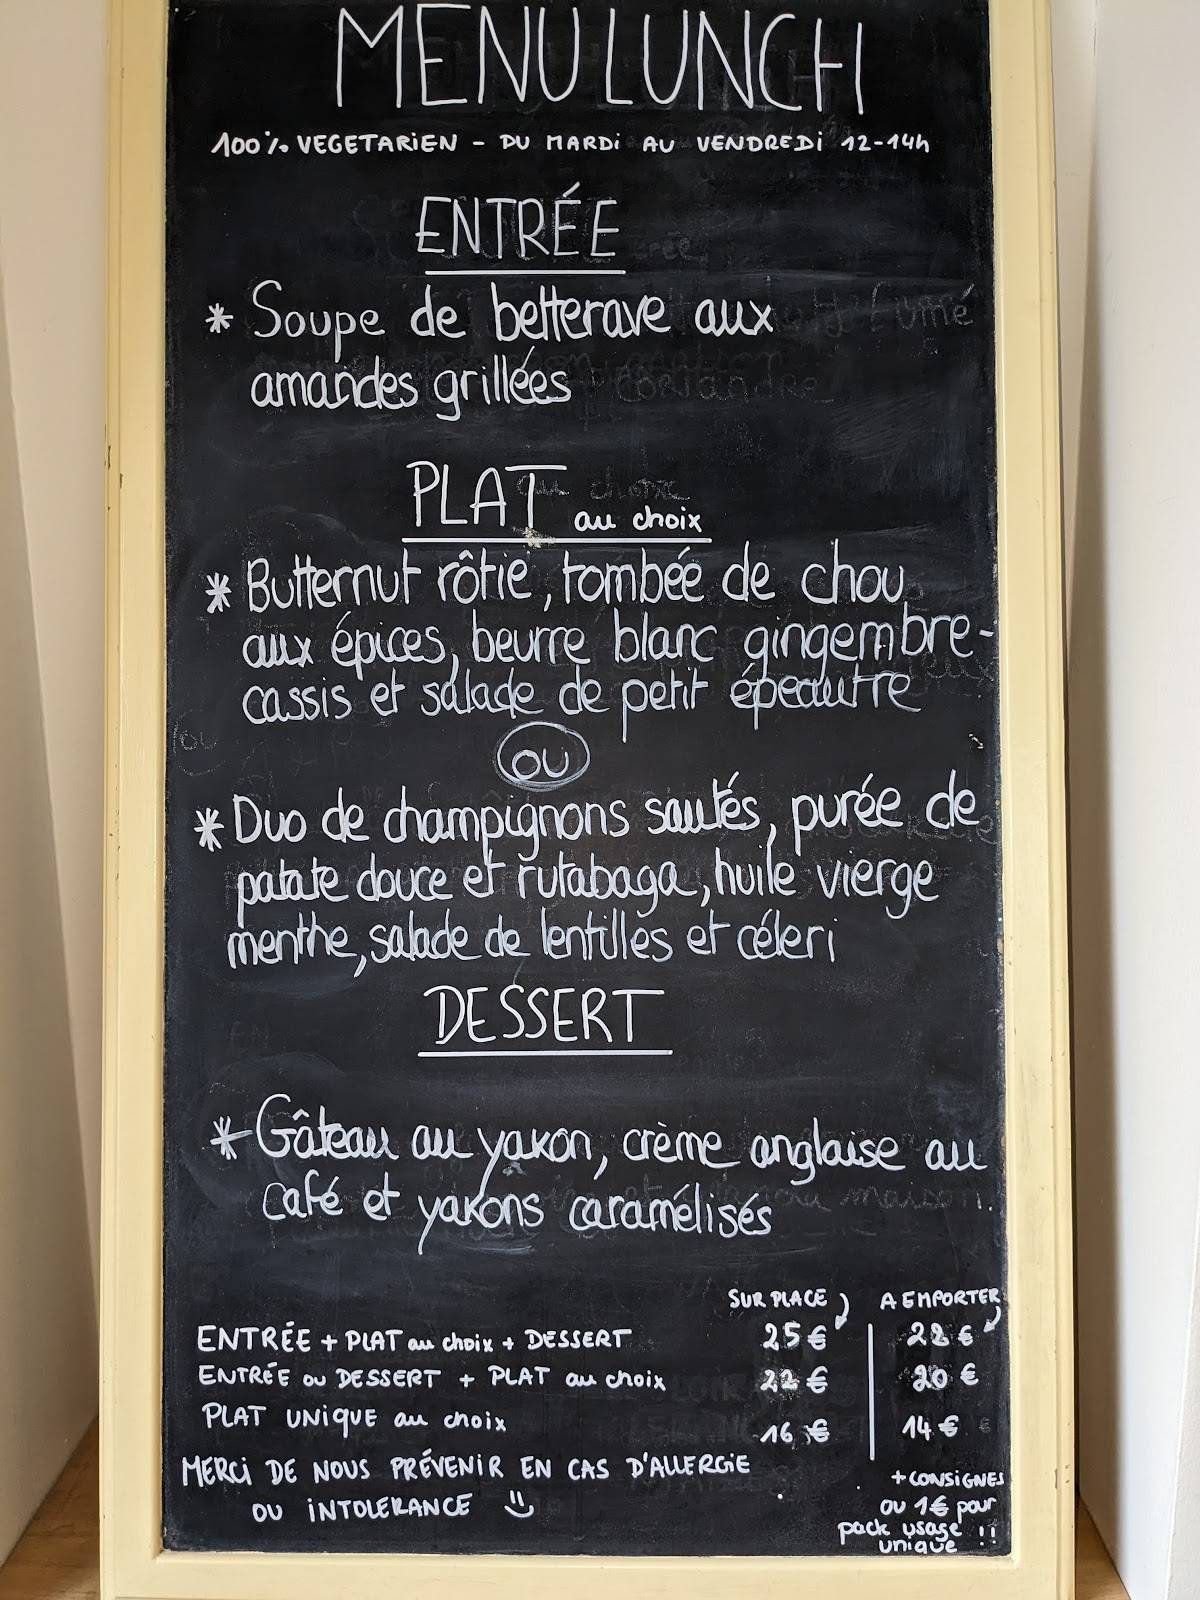 MENU LUNCH
100% VEGETARIEN - DU MARDI AU VENDREDI 12-14h
ENTRÉE
* Soupe de betterave aux
amandes grillées
PLAT au choix
* Butternut rôtie, tombée de chou
aux épices, beurre blanc gingembre-
cassis et salade de petit épeautre
OU
* Duo de champignons sautés, purée de
patate douce et rutabaga, huile vierge
menthe, salade de lentilles et céleri
DESSERT
* Gâteau au yakon, crème anglaise au
café et yakons caramélisés
SUR PLACE A EMPORTER
ENTRÉE + PLAT au choix + DESSERT 25 € 22 €
ENTRÉE OU DESSERT + PLAT au choix 22 € 20 €
PLAT UNIQUE au choix 16 € 14 €
MERCI DE NOUS PRÉVENIR EN CAS D'ALLERGIE
OU INTOLERANCE
+ CONSIGNES
OU 1€ pour
pack usage !!
unique